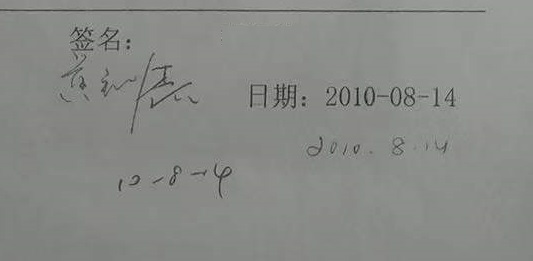 签名：
日期：2010-08-14
2010.8.14
10-8-14